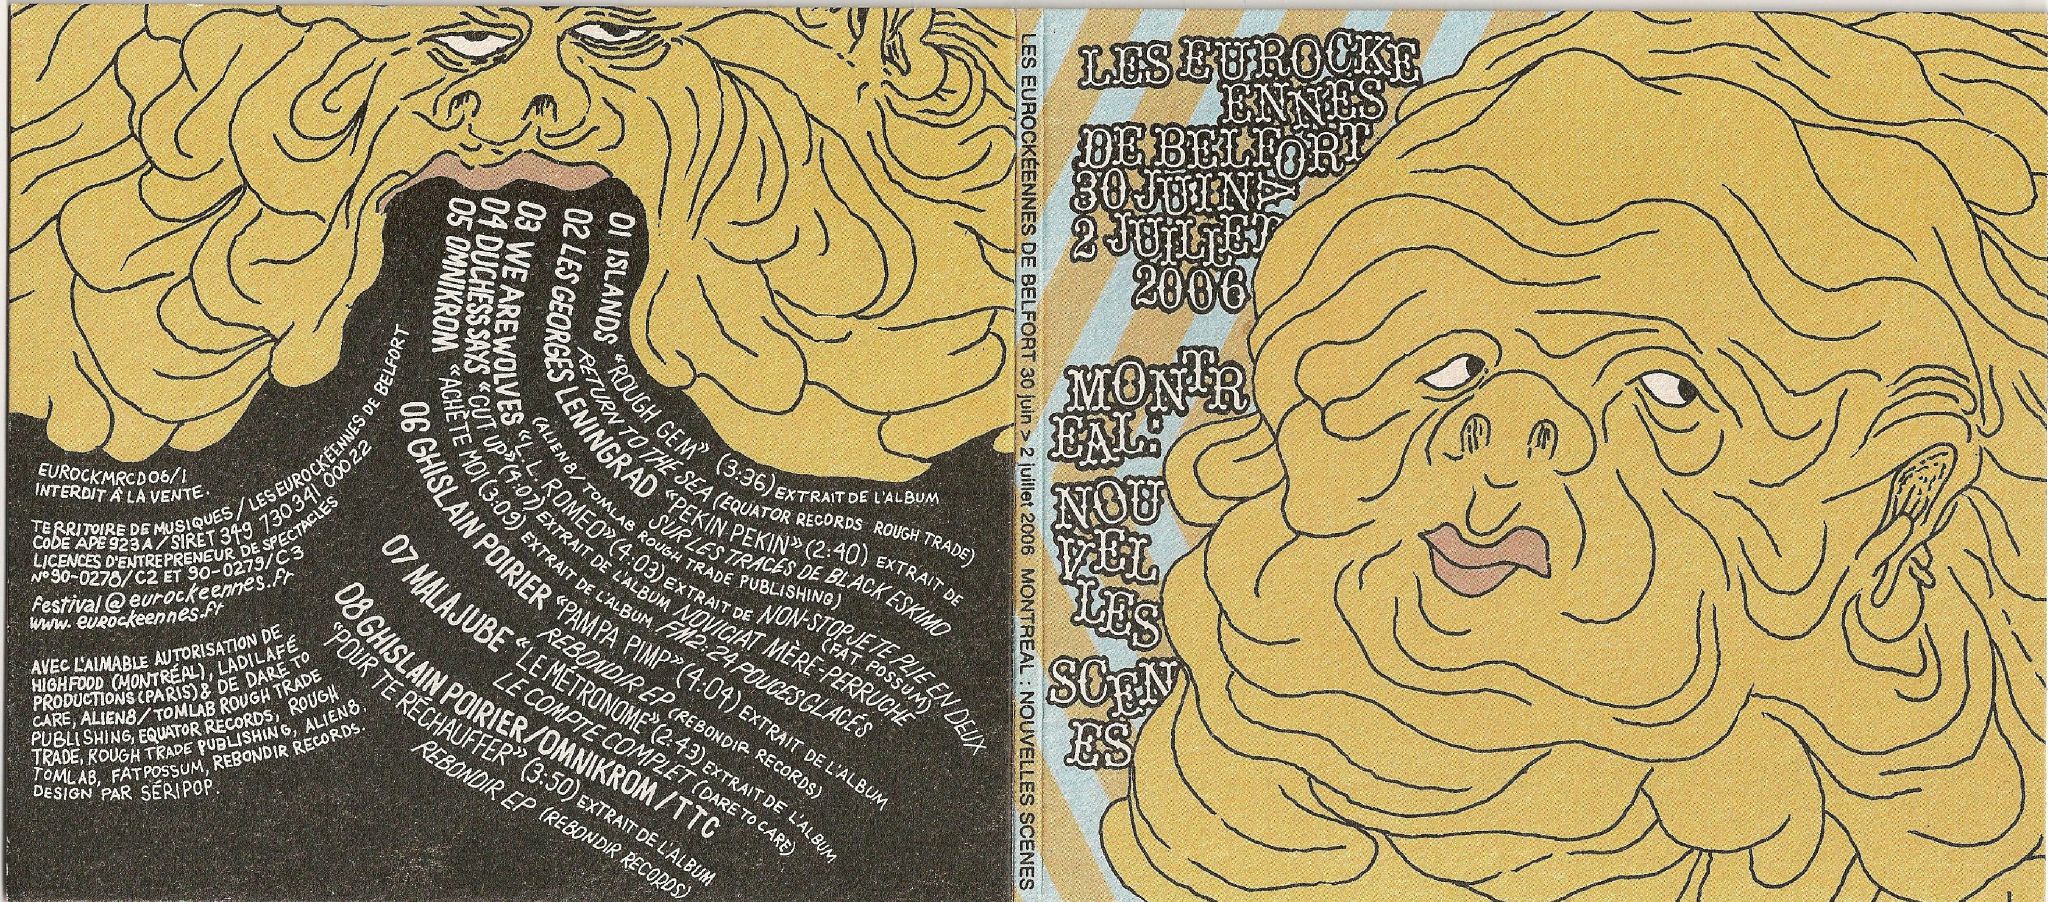 01 ISLANDS "ROUGH GEM" (3:36) EXTRAIT DE L'ALBUM
RETURN TO THE SEA (EQUATOR RECORDS ROUGH TRADE)
02 LES GEORGES LENINGRAD "PEKIN PEKIN" (2:40) EXTRAIT DE
SUR LES TRACES DE BLACK ESKIMO
(ALIEN8/TOMLAB ROUGH TRADE PUBLISHING)
03 WE ARE WOLVES "L.L. ROMEO" (4:03) EXTRAIT DE NON-STOP JE TE PLIE EN DEUX
(FAT POSSUM)
04 DUCHESS SAYS "CUT UP" (4:07) EXTRAIT DE L'ALBUM NOVICIAT MÈRE-PERRUCHE
05 OMNIKRON "ACHÈTE MOI" (3:09) EXTRAIT DE L'ALBUM FM2: 24 POUCES GLACÉS
06 GHISLAIN POIRIER "PAMPA PIMP" (4:04) EXTRAIT DE L'ALBUM
REBONDIR EP (REBONDIR RECORDS)
07 MALAJUBE "LE MÉTRONOME" (2:43) EXTRAIT DE L'ALBUM
LE COMPTE COMPLET (DARE TO CARE)
08 GHISLAIN POIRIER/OMNIKROM/TTC
"POUR TE RÉCHAUFFER" (3:50) EXTRAIT DE L'ALBUM
REBONDIR EP (REBONDIR RECORDS)
EUROCKMRCD06/1
INTERDIT À LA VENTE.
TERRITOIRE DE MUSIQUES / LES EUROCKÉENNES DE BELFORT
CODE APE 923A / SIRET 349 730 341 00022
LICENCES D'ENTREPRENEUR DE SPECTACLES
Nº 90-0278/C2 ET 90-0279/C3
festival@eurockeennes.fr
www.eurockeennes.fr
AVEC L'AIMABLE AUTORISATION DE
HIGHFOOD (MONTRÉAL), LADILAFÉ
PRODUCTIONS (PARIS) & DE DARE TO
CARE, ALIEN8/TOMLAB ROUGH TRADE
PUBLISHING, EQUATOR RECORDS, ROUGH
TRADE, ROUGH TRADE PUBLISHING, ALIEN8,
TOMLAB, FATPOSSUM, REBONDIR RECORDS.
DESIGN PAR SÉRIPOP.
LES EUROCKÉENNES DE BELFORT 30 juin > 2 juillet 2006 MONTREAL : NOUVELLES SCENES
LES EUROCKE
ENNES
DE BELFORT
30 JUIN A
2 JUILLET
2006
MONTR
EAL:
NOU
VEL
LES
SCEN
ES